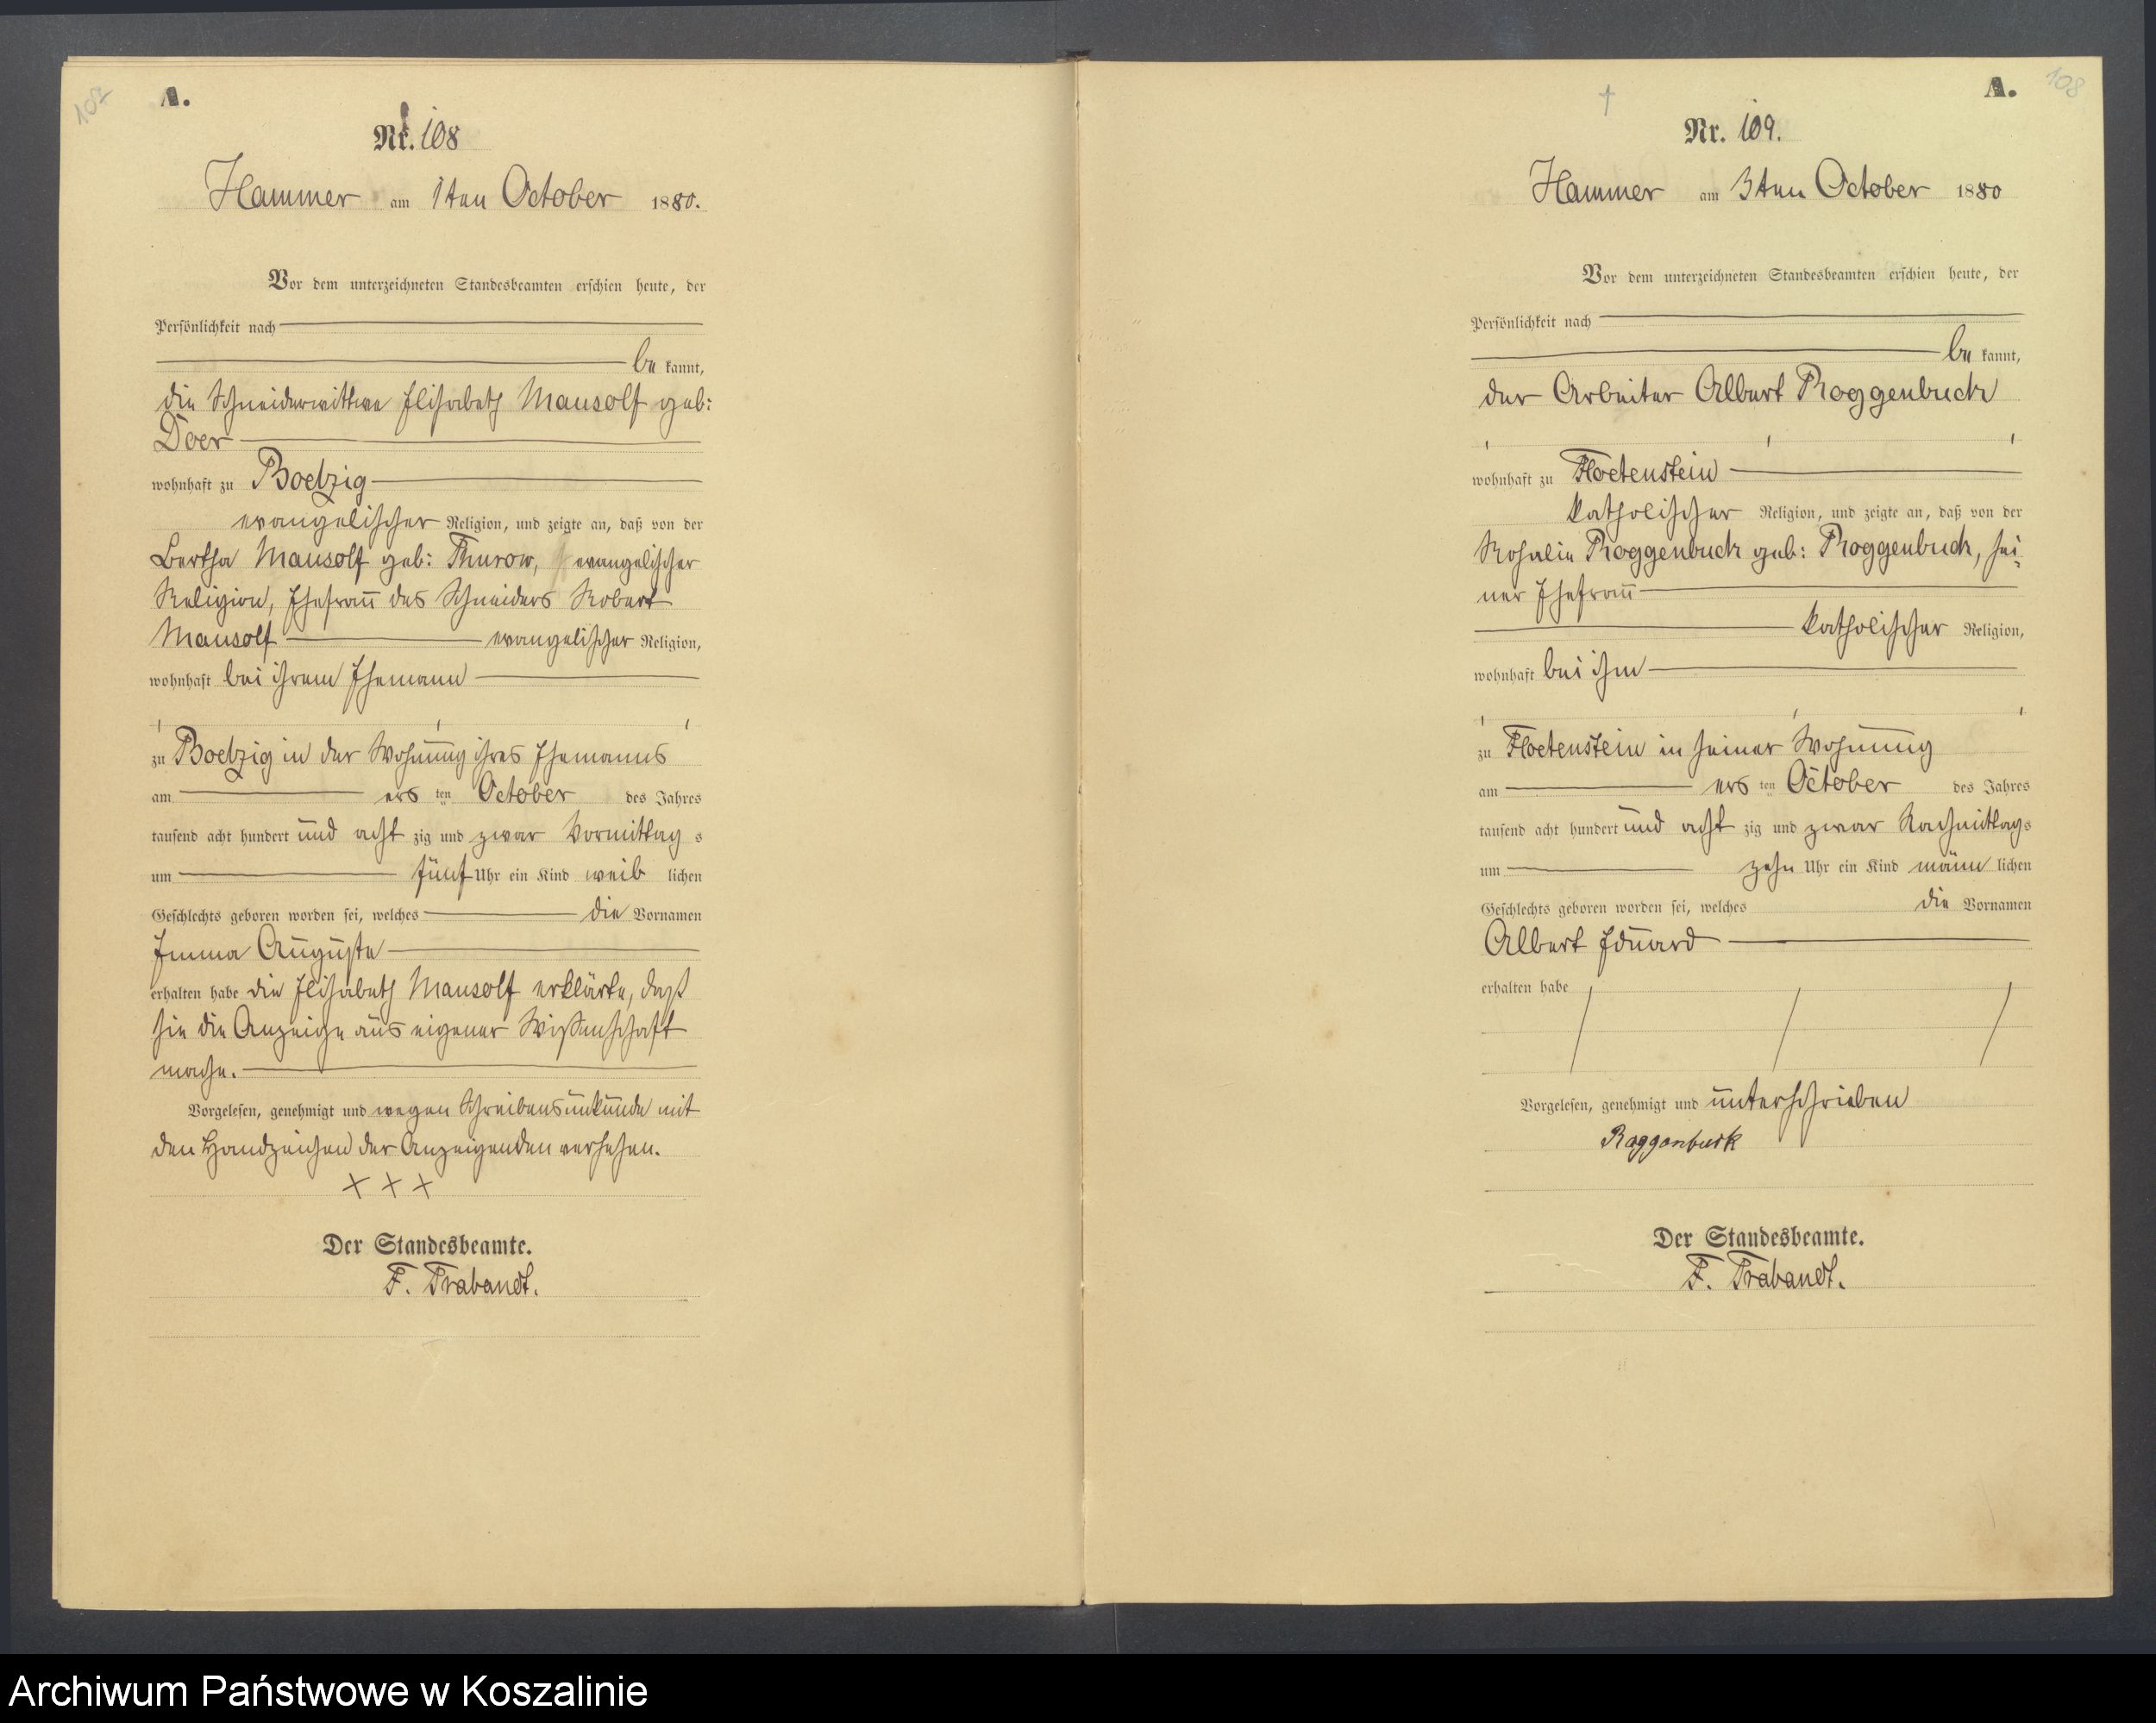 107
A.
Nr. 108
Hammer am 1ten October 1880.
Vor dem unterzeichneten Standesbeamten erschien heute, der
Persönlichkeit nach
be kannt,
die Schneiderwittwe Elisabeth Mausolf geb:
Doer
wohnhaft zu Boelzig
evangelischer Religion, und zeigte an, daß von der
Bertha Mausolf geb: Thurow, evangelischer
Religion, Ehefrau des Schneiders Robert
Mausolf evangelischer Religion,
wohnhaft bei ihrem Ehemann
zu Boelzig in der Wohnung ihres Ehemanns
am ers ten October des Jahres
tausend acht hundert und acht zig und zwar Vormittag s
um fünf Uhr ein Kind weib lichen
Geschlechts geboren worden sei, welches die Vornamen
Emma Auguste
erhalten habe die Elisabeth Mausolf erklärte, daß
sie die Anzeige aus eigener Wissenschaft
mache.
Vorgelesen, genehmigt und wegen Schreibensunkunde mit
den Handzeichen der Anzeigenden versehen.
X X X
Der Standesbeamte.
F. Trabandt.
A.
108
Nr. 109.
Hammer am 3ten October 1880
Vor dem unterzeichneten Standesbeamten erschien heute, der
Persönlichkeit nach
be kannt,
der Arbeiter Albert Roggenbuck
wohnhaft zu Floetenstein
katholischer Religion, und zeigte an, daß von der
Rosalie Roggenbuck geb: Roggenbuck, sei-
ner Ehefrau
katholischer Religion,
wohnhaft bei ihm
zu Floetenstein in seiner Wohnung
am ers ten October des Jahres
tausend acht hundert und acht zig und zwar Nachmittags
um zehn Uhr ein Kind männ lichen
Geschlechts geboren worden sei, welches die Vornamen
Albert Eduard
erhalten habe
Vorgelesen, genehmigt und unterschrieben
Roggenbuck
Der Standesbeamte.
F. Trabandt.
Archiwum Państwowe w Koszalinie